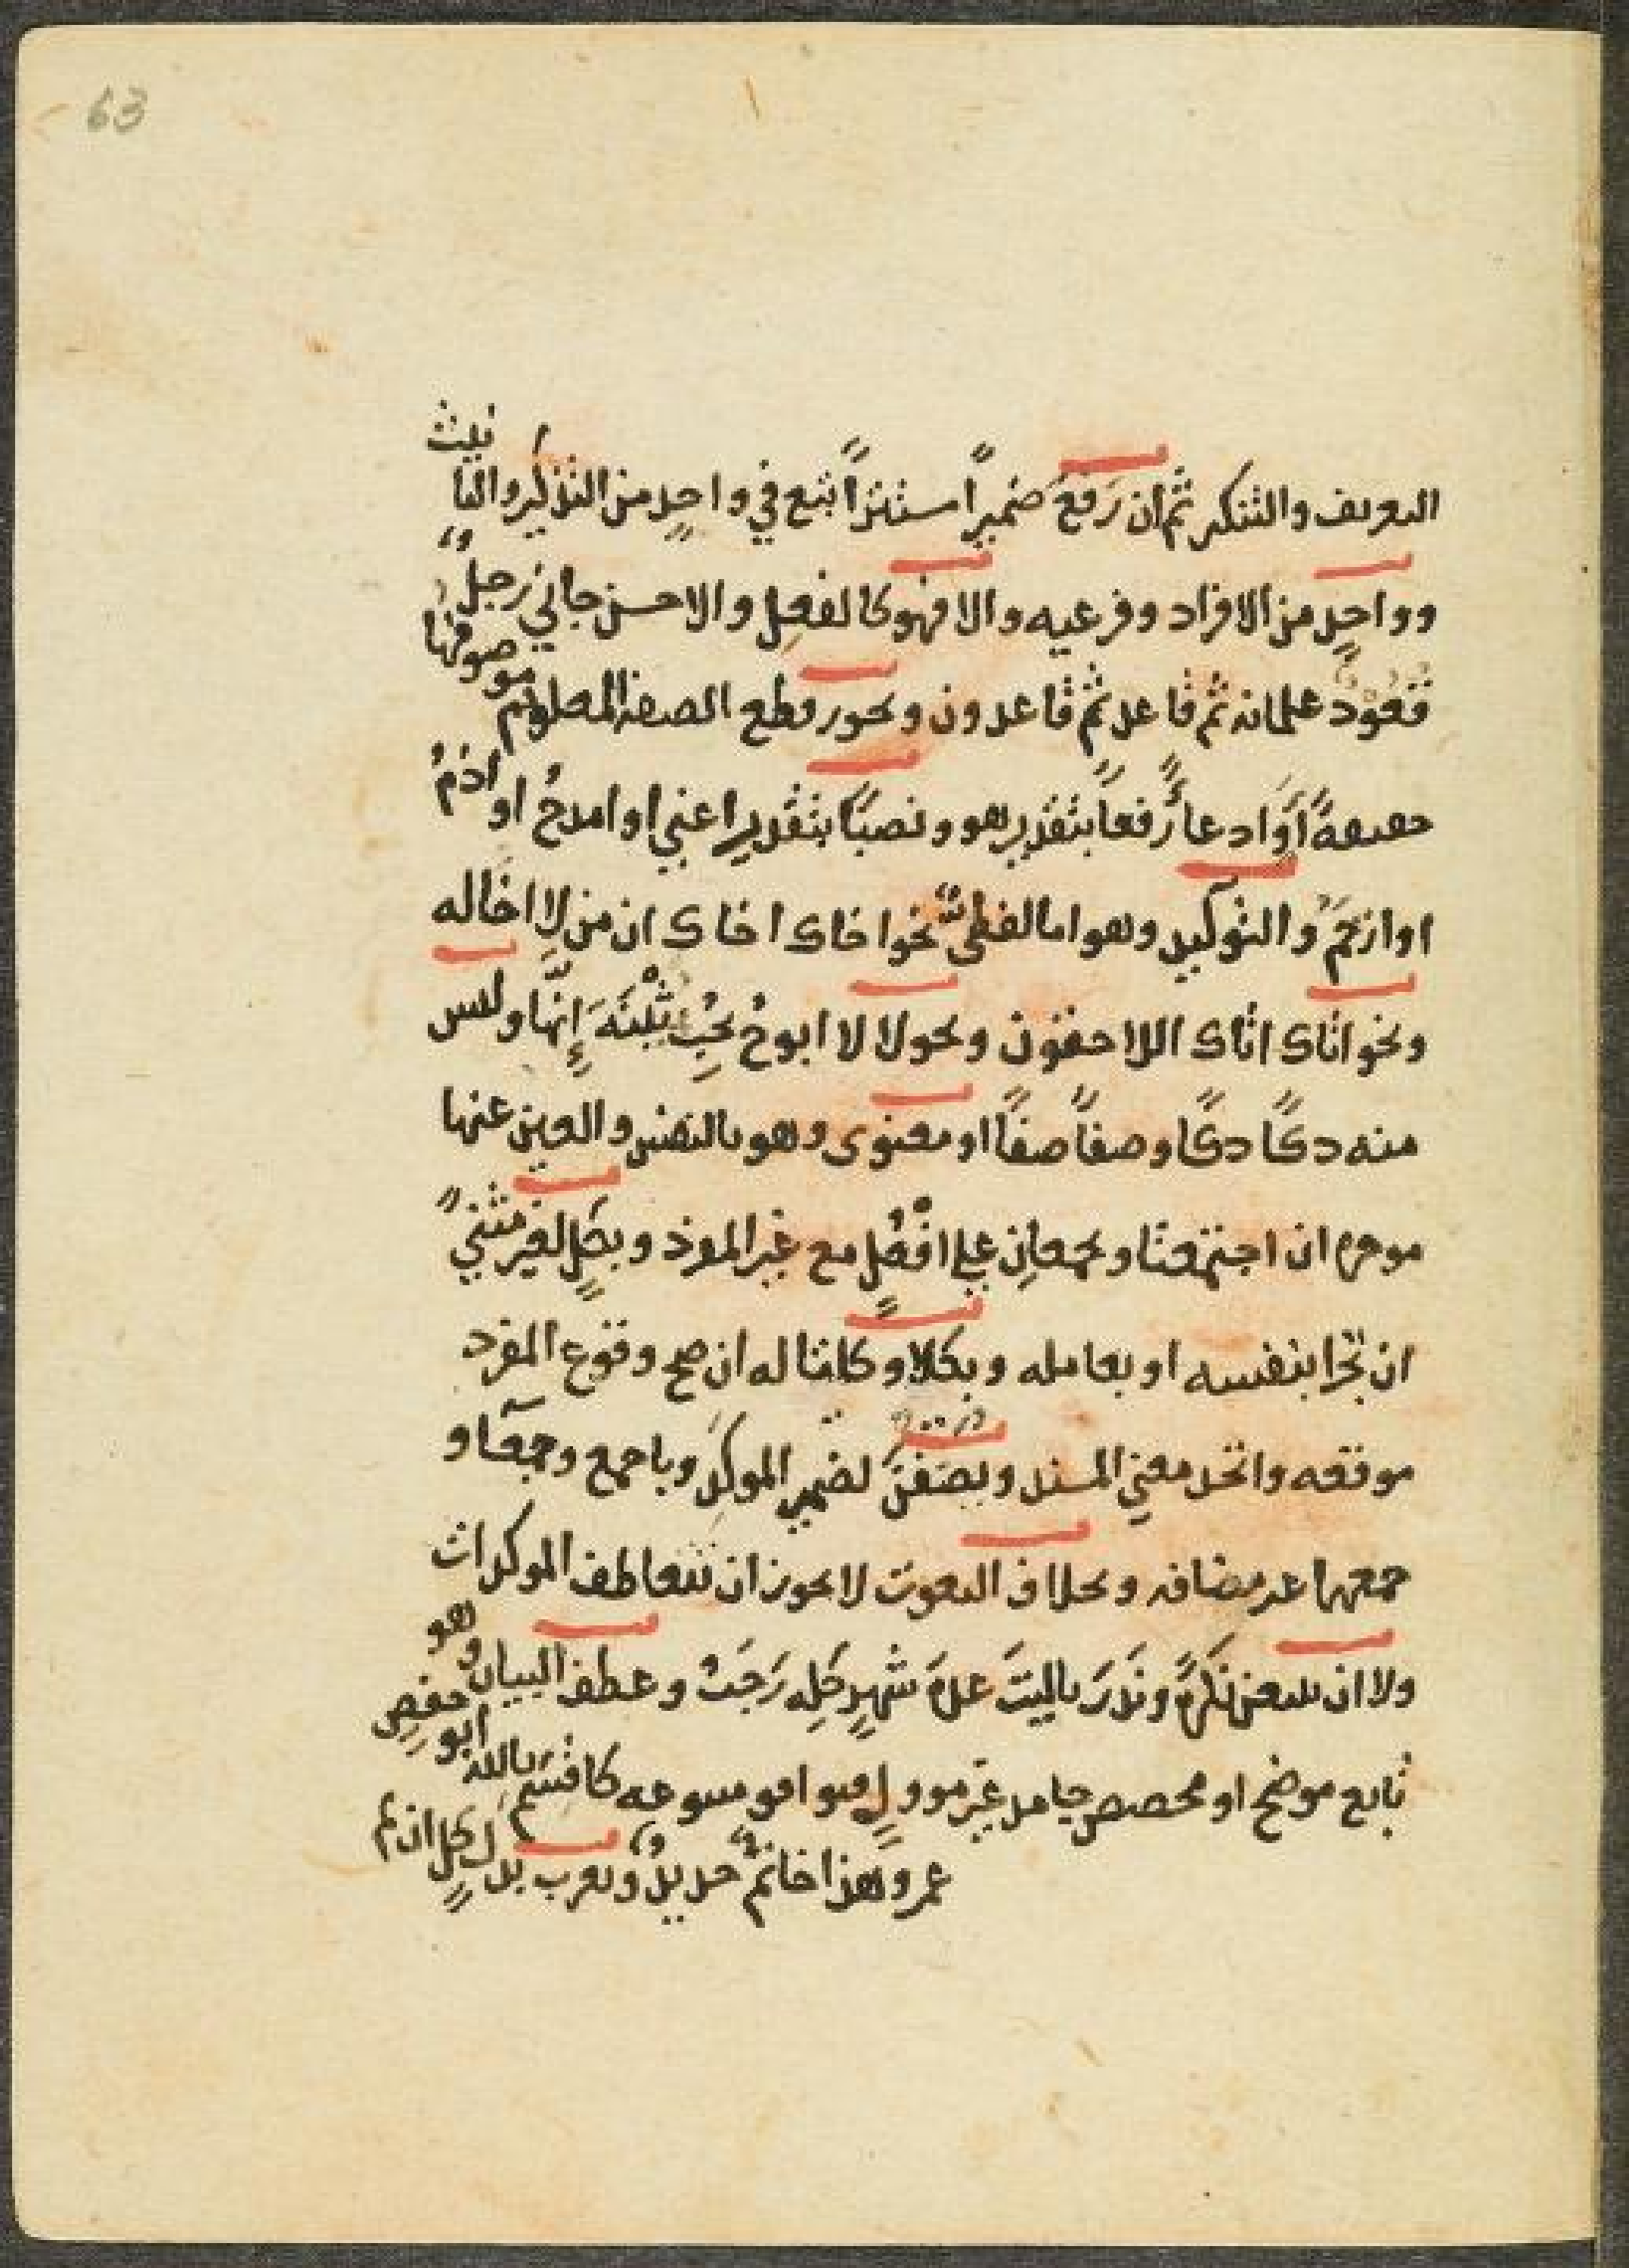 63
التعريف والتنكير ثم ان رَفَعَ ضميراً مستتراً تبع في واحدٍ من التذكير والتانيث
وواحدٍ من الافراد وفرعيه والا فهو كالفعل والاحسن جاني رجلٌ
قعودٌ غلمانه ثم قاعد ثم قاعدون ويجوز قطع الصفة المعلوم موصوفها
حقيقةً او ادعاءً رفعاً بتقدير هو ونصبًا بتقدير اعني او امدح او اذمُ
او ارحَمُ والتوكيد وهو اما لفظيٌّ نحو اخاك اخاك ان من لا اخاله
ونحو اتاك اتاك اللاحقون ونحو لا لا ابوحُ بحُبِ بَثْنَةَ إِنّها وليس
منه دكًا دكًا وصفاً صفاً او معنوي وهو بالنفس والعين عنها
موخره ان اجتمعتا ويجمعان على افْعُلٍ مع غير المفرد وبكلٍ لغير مثنيً
ان تجزا بنفسه او بعامله وبكلا وكلتا له ان صح وقوع المفرد
موقعه واتحد معني المسند ويضفن لضمير الموكَدِ وباجمع وجمعآ و
جمعهما غير مضافه وبخلاف النعوت لا يجوز ان تتعاطف الموكدات
ولا ان يتبعن نَكرةً ونَدَرَ ياليتَ عدةَ شهرٍ كِله رَجَبُ وعطف البيان وهو
تابع موضح او مخصص جامد غير موولٍ فيوافق متبوعه كاقسَمَ بالله ابو حفصٍ
عمر وهذا خاتمٌ حديدٌ ويعرب بدل كلٍ ان لم